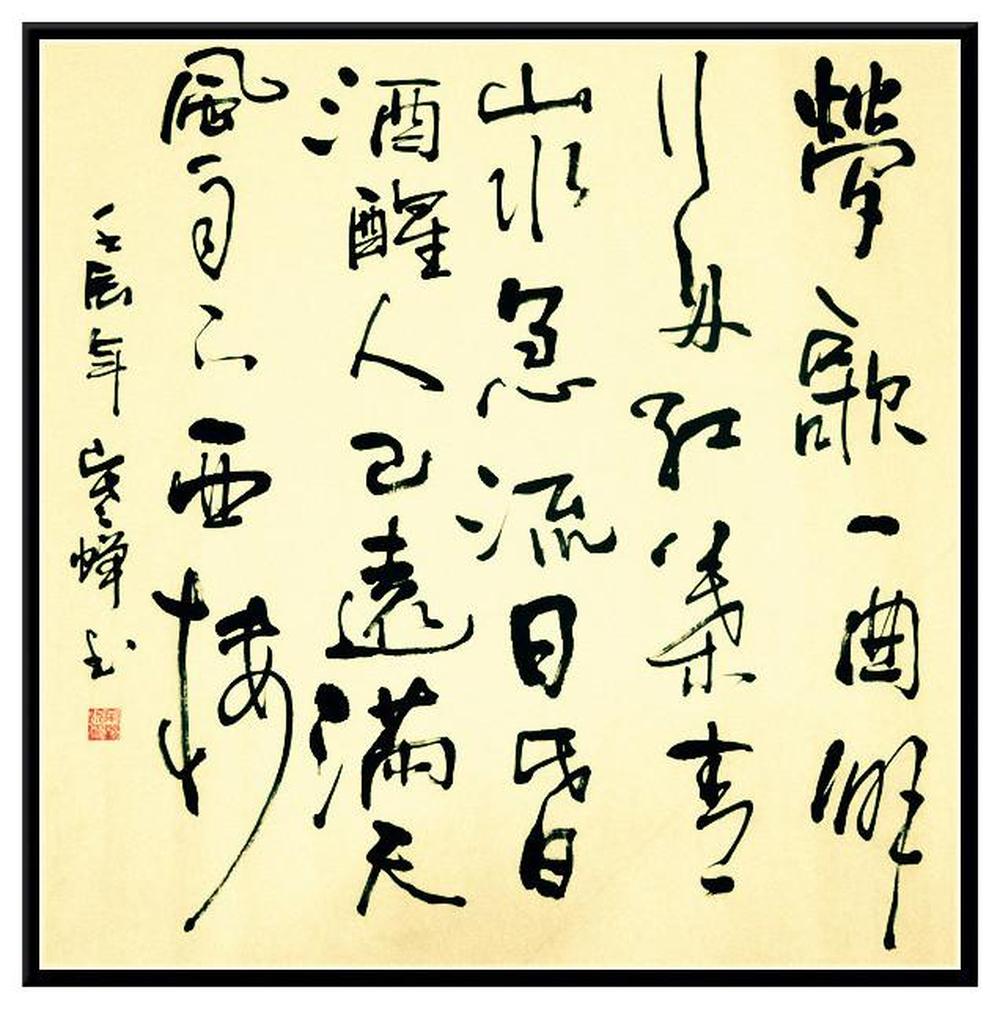 勞歌一曲解
行舟紅葉青
山水急流日昏
酒醒人已遠滿天
風雨下西樓
壬辰年寒蟬